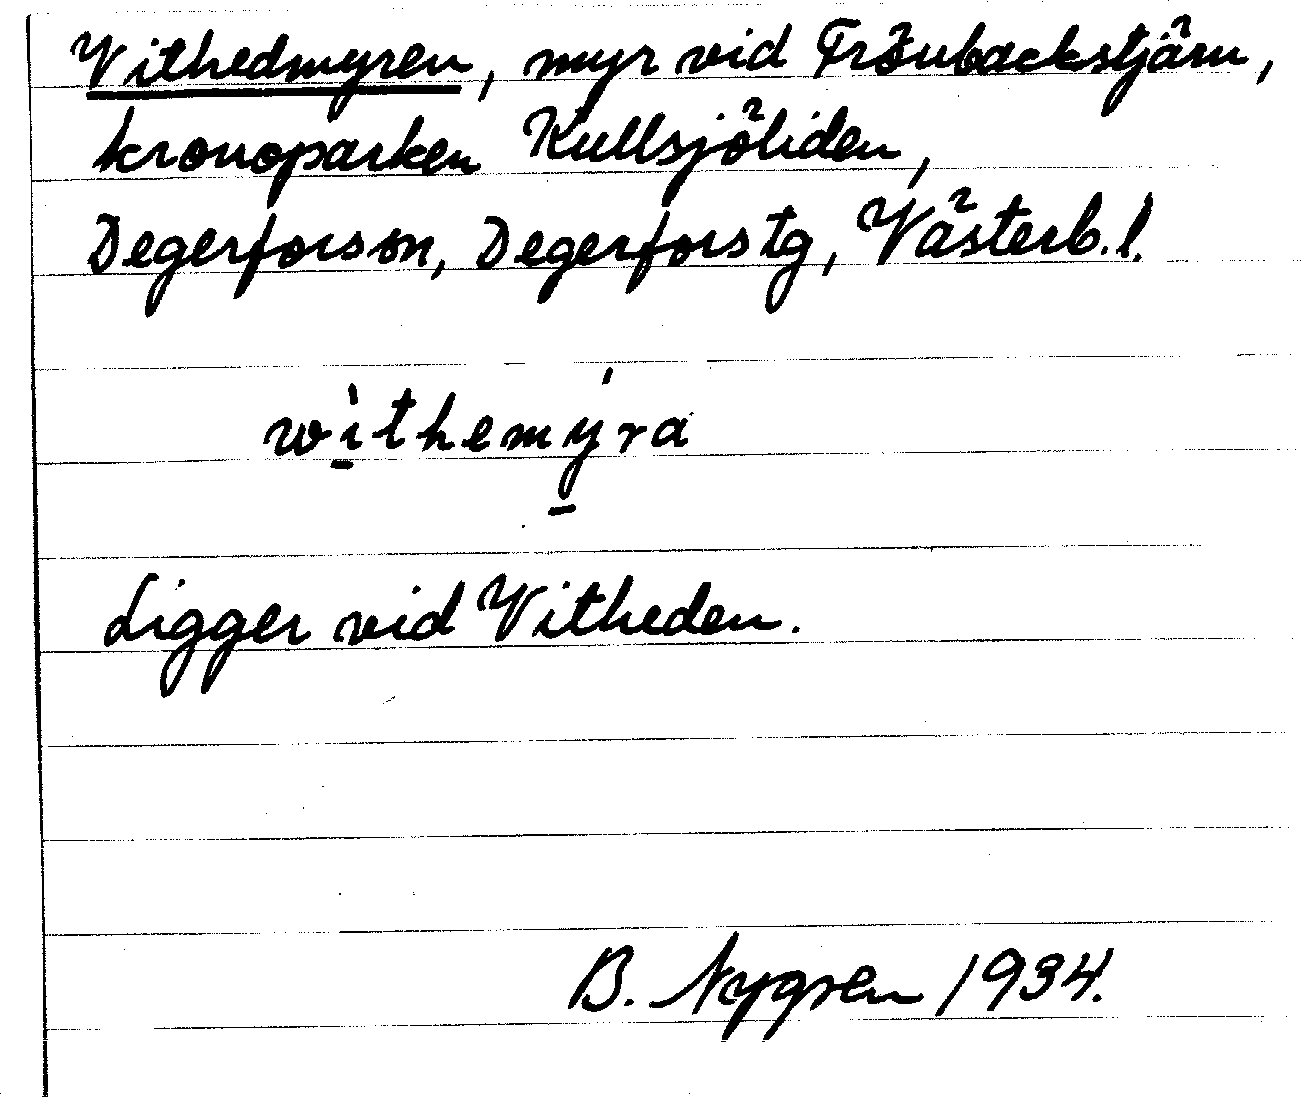 Vithedmyren, myr vid Fröubackstjärn,
kronoparken Kullsjöliden,
Degerforssn, Degerfors tg, Västerb.l.
wìthemýra
Ligger vid Vitheden.
B. Nygren 1934.